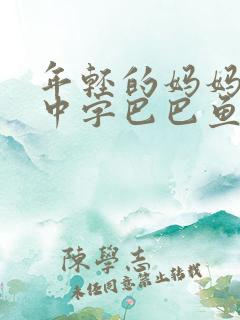 年轻的妈妈
中字巴巴鱼
陳學志
未经同意禁止转载